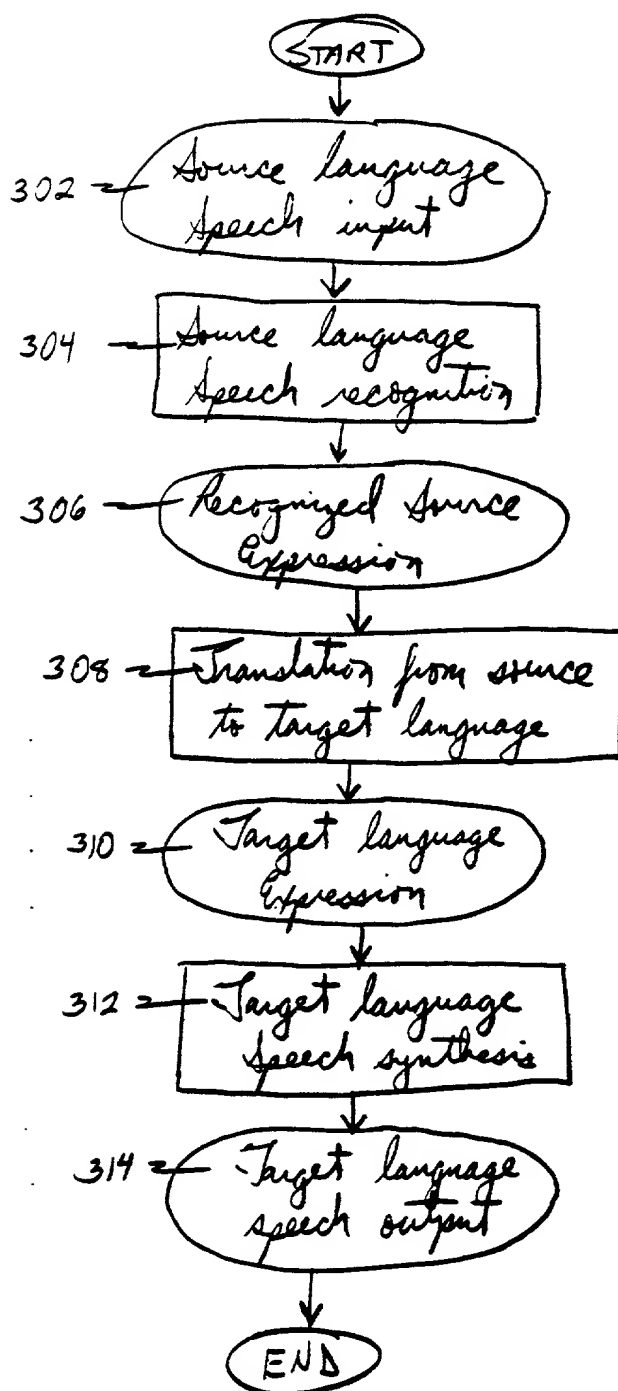 START
302 Source language
Speech input
304 Source language
Speech recognition
306 Recognized Source
Expression
308 Translation from source
to target language
310 Target language
Expression
312 Target language
Speech synthesis
314 Target language
speech output
END